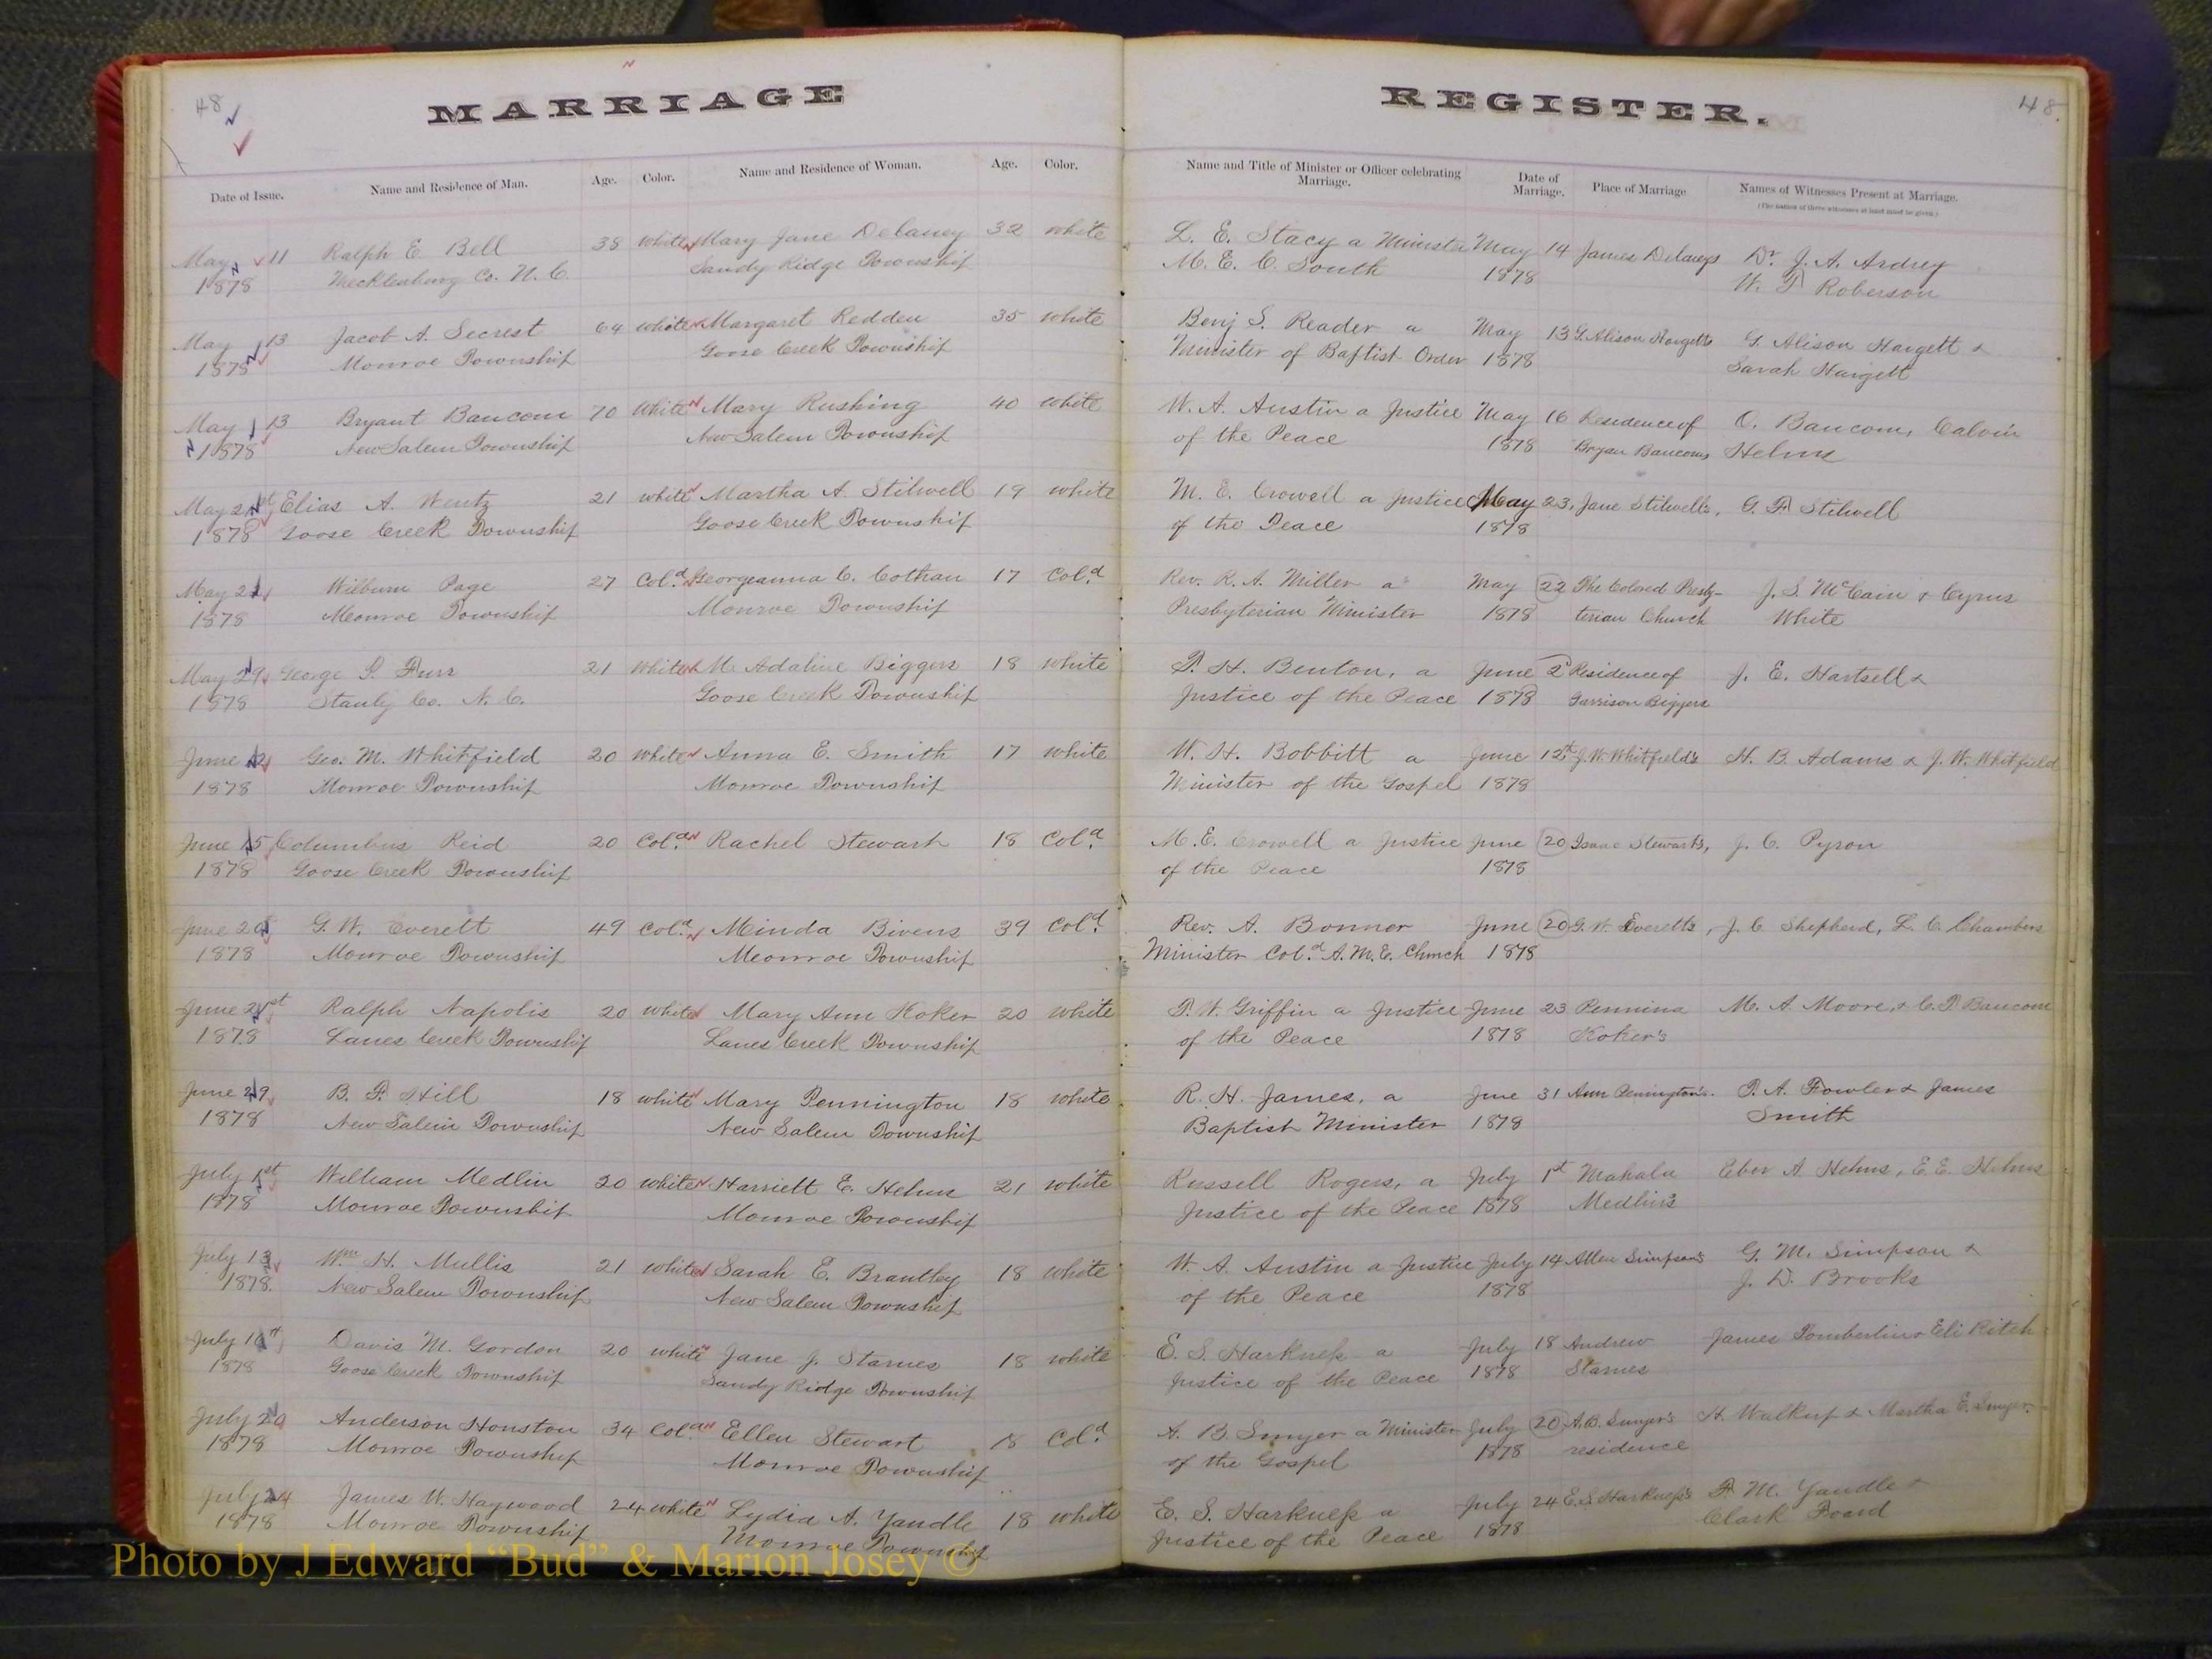 48
MARRIAGE
Date of Issue. Name and Residence of Man. Age. Color. Name and Residence of Woman. Age. Color.
May 11 Ralph E. Bell 38 white Mary Jane Delaney 32 white
1878 Mecklenburg Co. N. C. Sandy Ridge Township
May 13 Jacob A. Secrest 64 white Margaret Redden 35 white
1878 Monroe Township Goose Creek Township
May 13 Bryant Baucom 70 white Mary Rushing 40 white
1878 New Salem Township New Salem Township
May 21st Elias A. Wentz 21 white Martha A. Stilwell 19 white
1878 Goose Creek Township Goose Creek Township
May 22 Wilburn Page 27 Col.d Georgeanna C. Cothan 17 Col.d
1878 Monroe Township Monroe Township
May 29 George P. Furr 21 white M. Adaline Biggers 18 white
1878 Stanly Co. N. C. Goose Creek Township
June Geo. M. Whitfield 20 white Anna E. Smith 17 white
1878 Monroe Township Monroe Township
June 15 Columbus Reid 20 Col.d Rachel Stewart 18 Col.d
1878 Goose Creek Township
June 20 G. W. Everett 49 Col.d Minda Bivens 39 Col.d
1878 Monroe Township Monroe Township
June 21st Ralph Napolis 20 white Mary Ann Koker 20 white
1878 Lanes Creek Township Lanes Creek Township
June 29 B. F. Hill 18 white Mary Pennington 18 white
1878 New Salem Township New Salem Township
July 1st William Medlin 20 white Harriett E. Helms 21 white
1878 Monroe Township Monroe Township
July 13 Wm H. Mullis 21 white Sarah E. Brantley 18 white
1878. New Salem Township New Salem Township
July 16 Davis M. Gordon 20 white Jane J. Starnes 18 white
1878 Goose Creek Township Sandy Ridge Township
July 20 Anderson Houston 34 Col.d Ellen Stewart 18 Col.d
1878 Monroe Township Monroe Township
July 24 James W. Haywood 24 white Lydia A. Yandle 18 white
1878 Monroe Township Monroe Township
REGISTER.
48.
Name and Title of Minister or Officer celebrating Marriage. Date of Marriage. Place of Marriage Names of Witnesses Present at Marriage.
(The names of three witnesses at least must be given.)
L. E. Stacy a Minister May 14 James Delaneys Dr. J. A. Ardrey
M. E. C. South 1878 W. P. Roberson
Benj S. Reader a May 13 G. Alison Hargetts G. Alison Hargett &
Minister of Baptist Order 1878 Sarah Hargett
W. A. Austin a Justice May 16 Residence of O. Baucom, Calvin
of the Peace 1878 Bryan Baucoms Helms
M. E. Crowell a Justice May 23, Jane Stilwell's, G. F. Stilwell
of the Peace 1878
Rev. R. A. Miller a May 22 The Colored Presby-
Presbyterian Minister 1878 terian Church J. S. McCain & Cyrus White
P. H. Benton, a June 2d Residence of J. E. Hartsell &
Justice of the Peace 1878 Garrison Biggers
W. H. Bobbitt a June 12th J. W. Whitfield's H. B. Adams & J. W. Whitfield
Minister of the Gospel 1878
M. E. Crowell a Justice June 20 Isaac Stewart's, J. C. Pyron
of the Peace 1878
Rev. A. Bonner June 20 G. W. Everetts, J. C. Shepherd, L. C. Chambers
Minister Col.d A. M. E. Church 1878
P. W. Griffin a Justice June 23 Pennina M. A. Moore, & C. P. Baucom
of the Peace 1878 Koker's
R. H. James, a June 31 Ann Pennington's. P. A. Fowler & James
Baptist Minister 1878 Smith
Russell Rogers, a July 1st Mahala Eber A. Helms, E. E. Helms
Justice of the Peace 1878 Medlin's
W. A. Austin a Justice July 14 Allen Simpson's G. M. Simpson &
of the Peace 1878 J. D. Brooks
E. S. Harkness a July 18 Andrew James Tomberlin & Eli Ritch
Justice of the Peace 1878 Starnes
A. B. Smyer a Minister July 20 A. B. Smyer's H. Walkup & Martha E. Smyer.
of the Gospel 1878 residence
E. S. Harkness a July 24 E. S. Harkness's F. M. Yandle &
Justice of the Peace 1878 Clark
Photo by J Edward “Bud” & Marion Josey ©